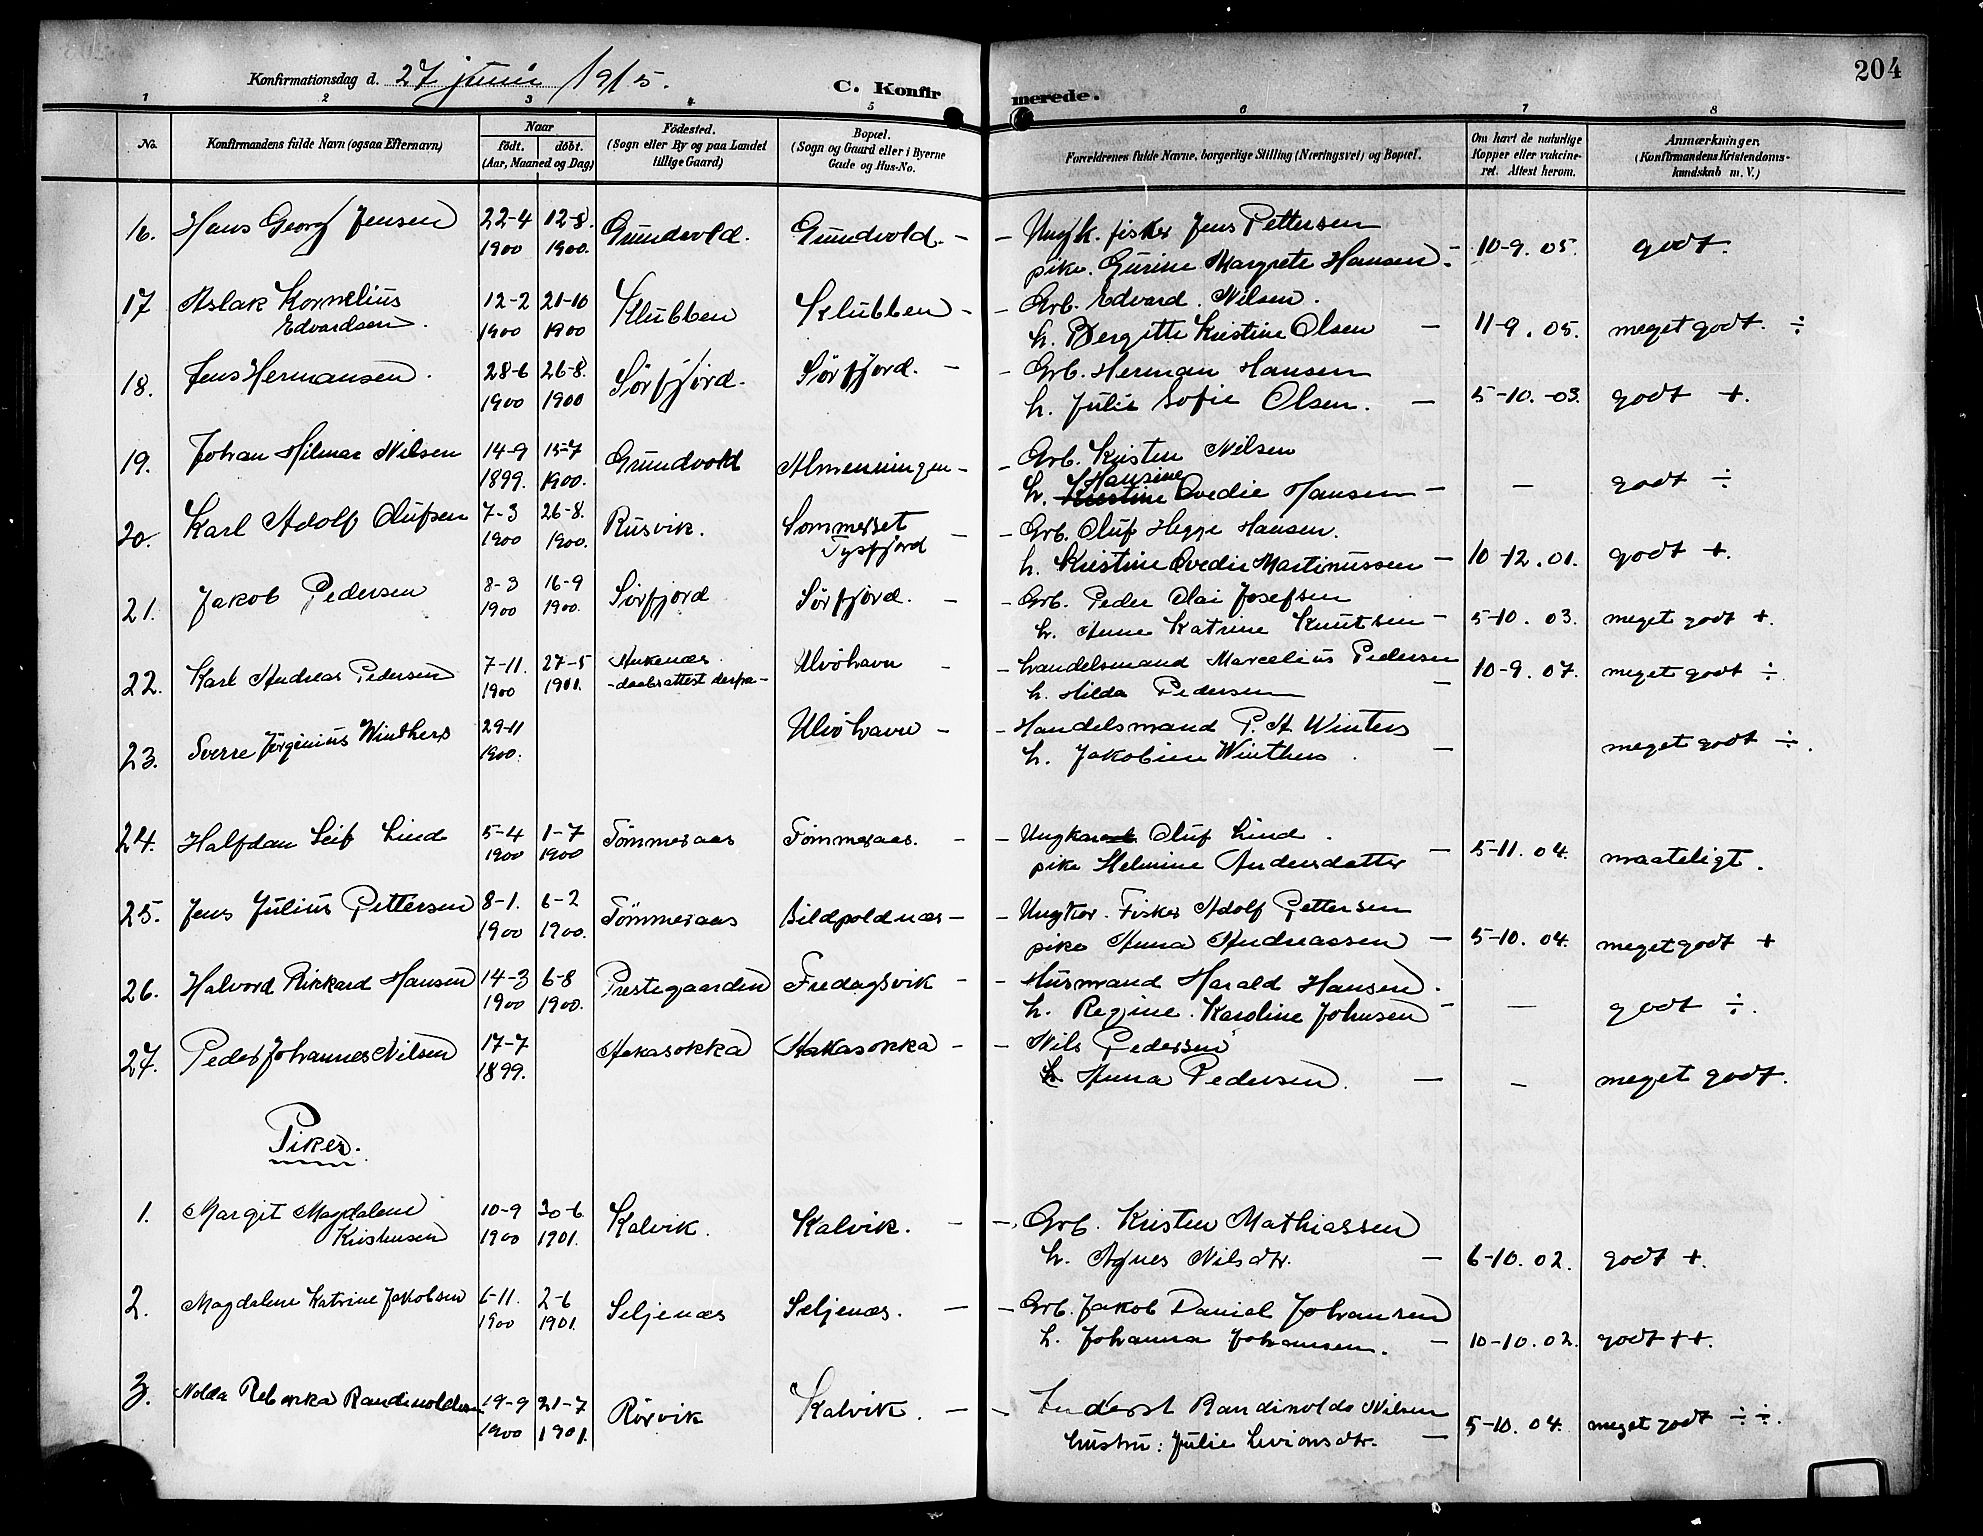 204
Konfirmationsdag d. 27 juni 1915.
C. Konfirmerede.
1 2 3 4 5 6 7 8
No.
Konfirmandens fulde Navn (ogsaa Efternavn)
Naar
født. døbt.
(Aar, Maaned og Dag)
Fødested.
(Sogn eller By og paa Landet
tillige Gaard)
Bopæl.
(Sogn og Gaard eller i Byerne
Gade og Hus-No.
Forældrenes fulde Navne, borgerlige Stilling (Næringsvei) og Bopæl.
Om havt de naturlige
Kopper eller vakcine-
ret. Attest herom.
Anmærkninger.
(Konfirmandens Kristendoms-
kundskab m. V.)
16. Hans Georg Jensen 22-4 1900 12-8. 1900. Grundvold. Grundvold. -
- Ungk. fisker Jens Pettersen
pike. Gurine Margrete Hansen - 10-9. 05. godt.
17 Aslak Kornelius Edvardsen. 12-2 1900 21-10 1900 Klubben Klubben -
- Grb. Edvard. Nilsen.
h. Bergitte Kristine Olsen - 11-9. 05. meget godt. ÷
18. Jens Hermansen. 28-6 1900 26-8. 1900 Sørfjord. Sørfjord. -
- Grb. Herman Hansen
h. Julie Sofie Olsen. - 5-10.-03. godt +.
19. Johan Hilmar Nilsen 14-9 1899. 15-7 1900. Grundvold Almenningen -
- Grb. Kristen Nilsen
h. Hansine Ovedie Hansen - - godt ÷
20. Karl Adolf Olufsen 7-3 1900 26-8. 1900. Rusvik. Sommerset Tysfjord -
- Grb. Oluf Hegge Hansen.
h. Kristine Ovedie Martinussen - 10-12. 01. godt +.
21. Jakob Pedersen 8-3 1900 16-9 1900. Sørfjord Sørfjord. -
- Grb. Peder Olai Josefsen
h. Anne Katrine Knutsen - 5-10. 03. meget godt +.
22. Karl Andreas Pedersen 7-11. 1900 27-5 1901. Ankenæs - daabsattest derfra - Ulvöhavn -
- handelsmand Marcelius Pedersen
h. Hilda Pedersen - 10-9. 07. meget godt ÷.
23. Sverre Jørginius Winthers 29-11 1900. Ulvöhavn -
- Handelsmand P. A Winters
h. Jakobine Winthers. - meget godt ÷.
24. Halfdan Leif Lind 5-4 1900 1-7 1900 Tömmeraas Tömmeraas. -
- Ungkar Oluf Lind.
pike Helmine Andersdatter - 5-11. 04. maateligt.
25. Jens Julius Pettersen 8-1. 1900 6-2 1900. Tömmeraas Bildpoldnæs -
- Ungkar. Fisker Adolf Pettersen
pike Anna Andreassen - 5-10. 04. meget godt +
26. Halvord Rikkard Hansen 14-3 1900 6-8 1900. Prestegaarden Fredagsvik -
- Husmand Harald Hansen.
h. Regine. Karoline Johnsen - - godt ÷.
27. Peder Johannes Nilsen 17-7 1899. Hakasokka Kakasokka -
- Nils Pedersen
h. Anna Pedersen. - - meget godt.
Piker.
1. Margit Magdalene Kristensen 10-9 1900 30-6. 1901. Kalvik. Kalvik. -
- Grb. Kristen Mathiassen
h. Agnes Nilsdtr. - 6-10. 02. godt +.
2. Magdalene Katrine Jakobsen 6-11. 1900 2-6 1901. Seljenæs Seljenæs. -
- Grb. Jakob Daniel Johansen
h. Johanna Johansen. - 10-10. 02. godt ++.
3. Nolda Rebekka Randinoldsen 19-9 1900 21-7 1901. Rörvik Kalvik. -
- Inderst Randinolds Nilsen
hustru: Julie Levionsdtr. - 5-10. 04. meget godt ÷÷.